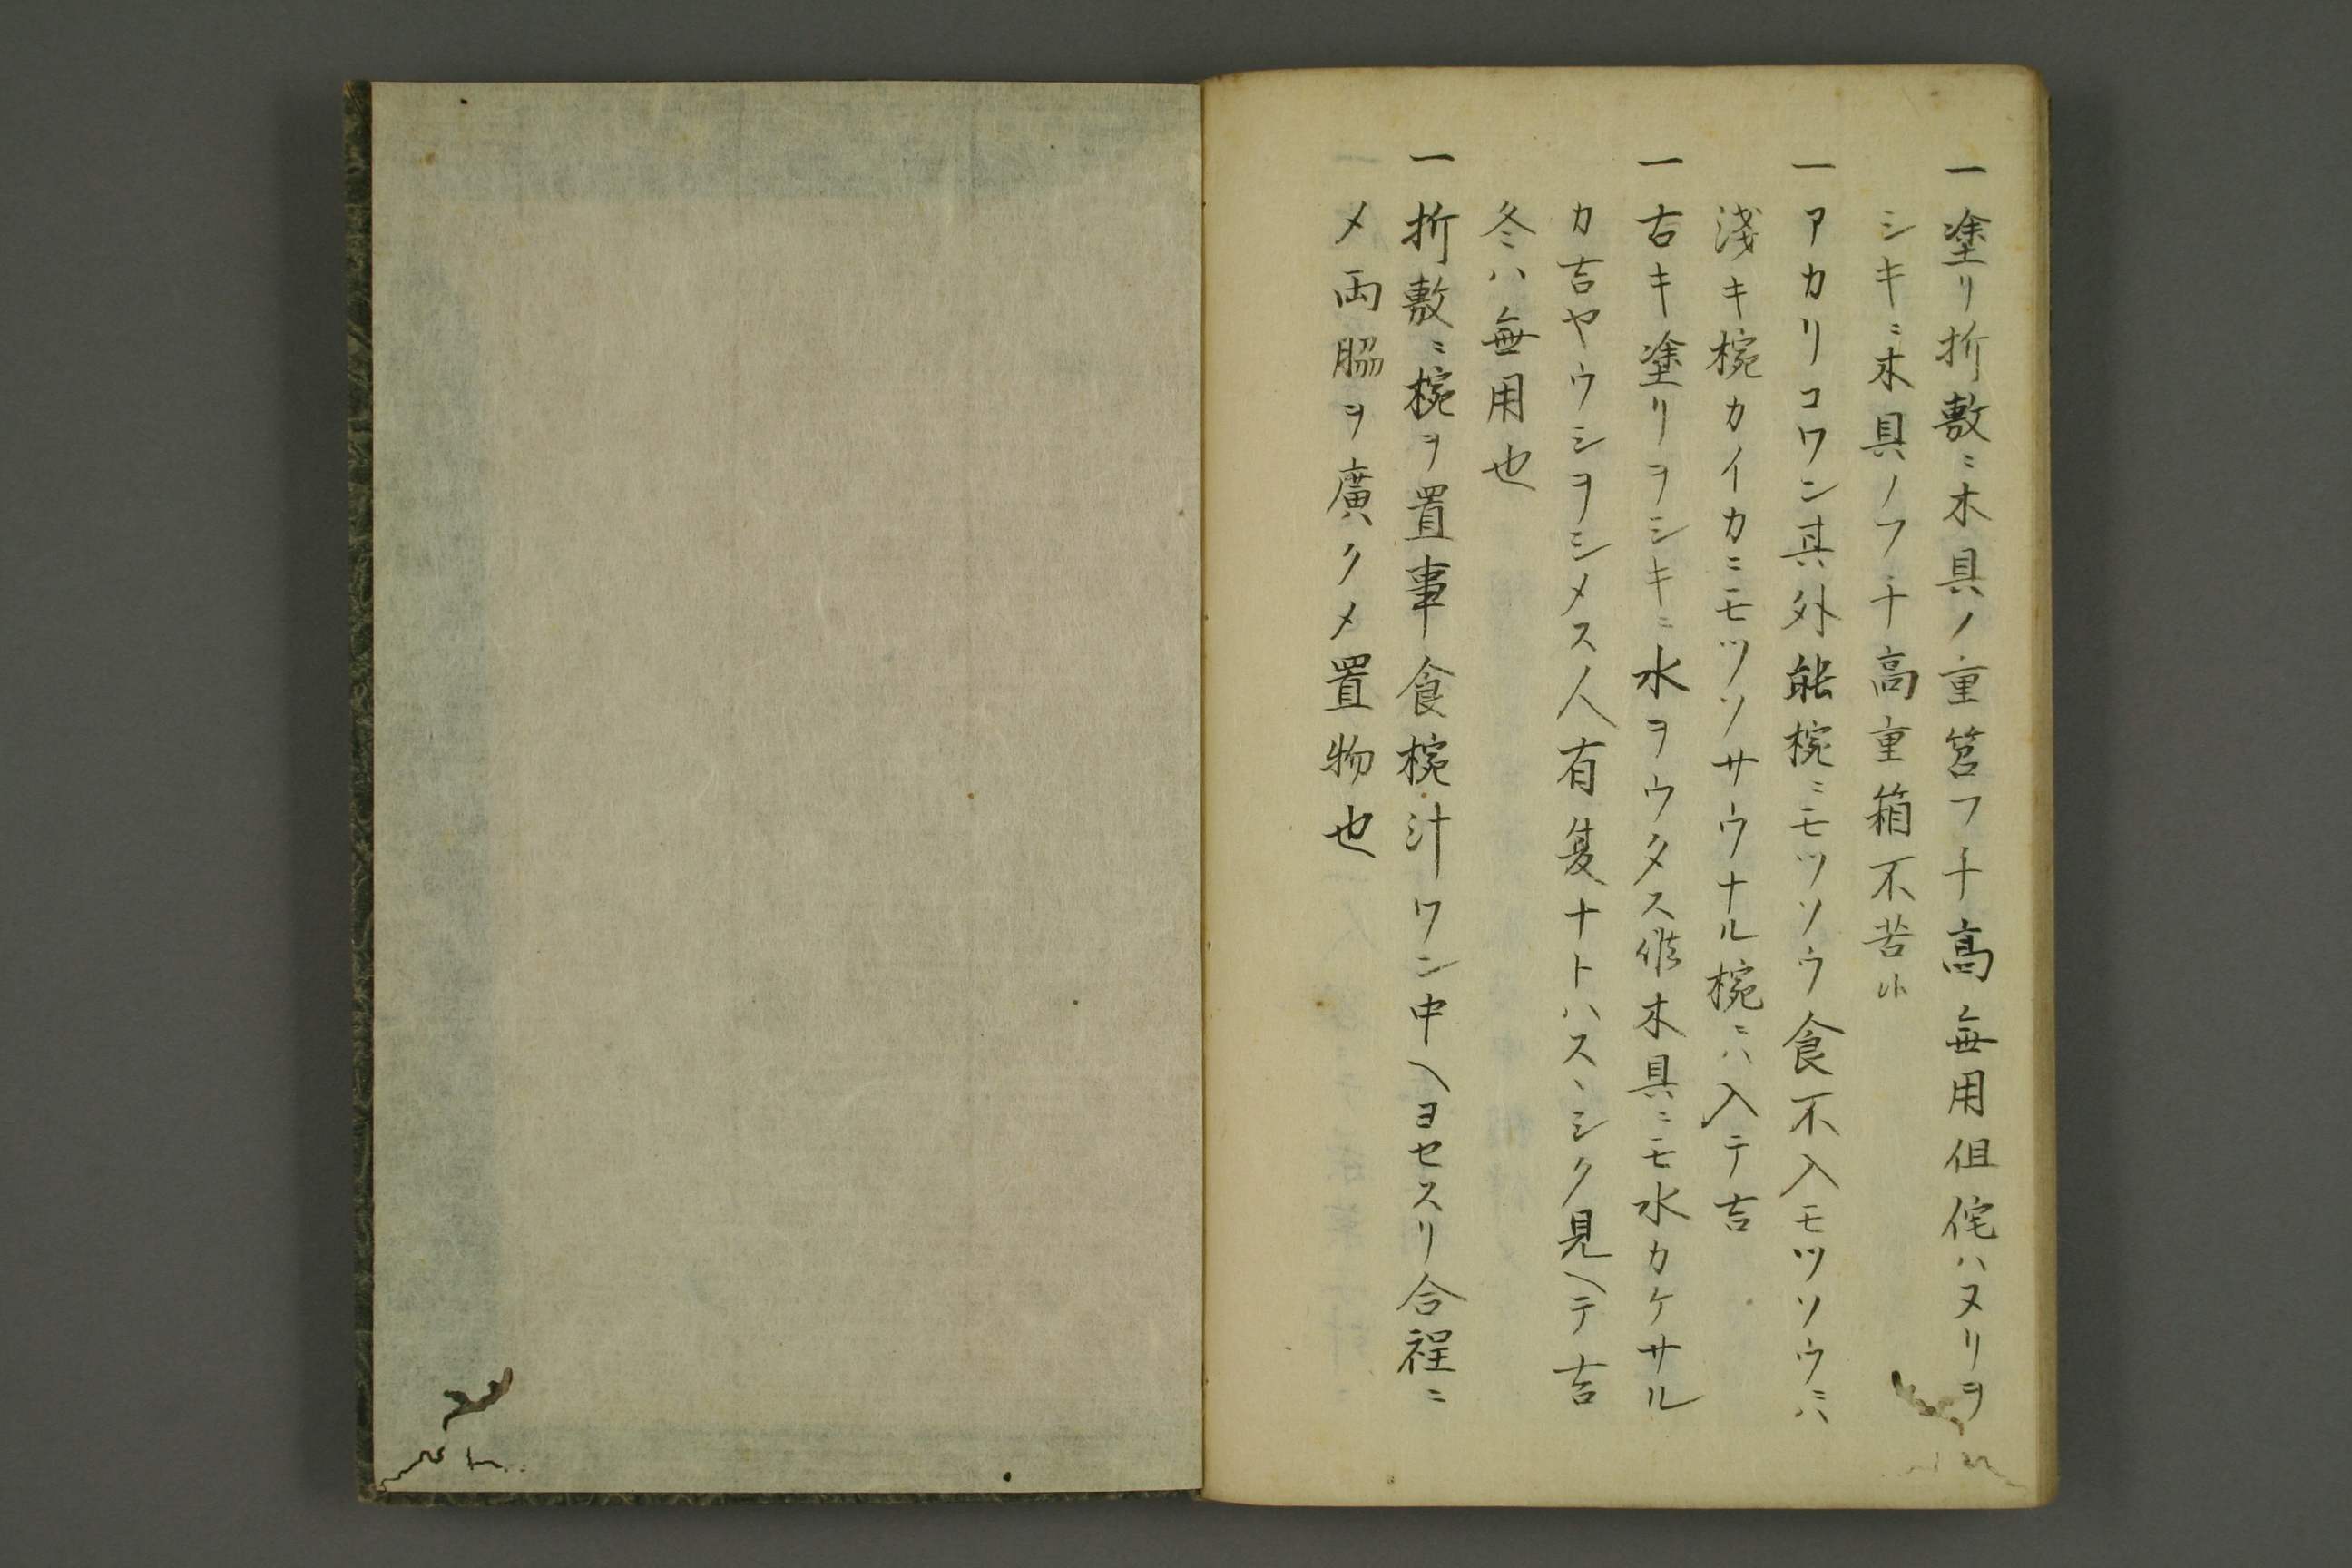 一塗リ折敷ニ木具ノ重筥フチ高無用但侘ハヌリヲ
シキニ木具ノフチ高重箱不苦
一アカリコワン其外能椀ニモツソウ食不入モツソウニハ
淺キ椀カイカニモツソサウナル椀ニハ入テ吉
一古キ塗リヲシキニ水ヲウタス又木具ニモ水カケサル
カ吉ヤウシヲシメス人有夏ナトハスヽシク見ヘテ吉
冬ハ無用也
一折敷ニ椀ヲ置事食椀汁ワン中ヘヨセスリ合程ニ
〆両脇ヲ廣ク〆置物也